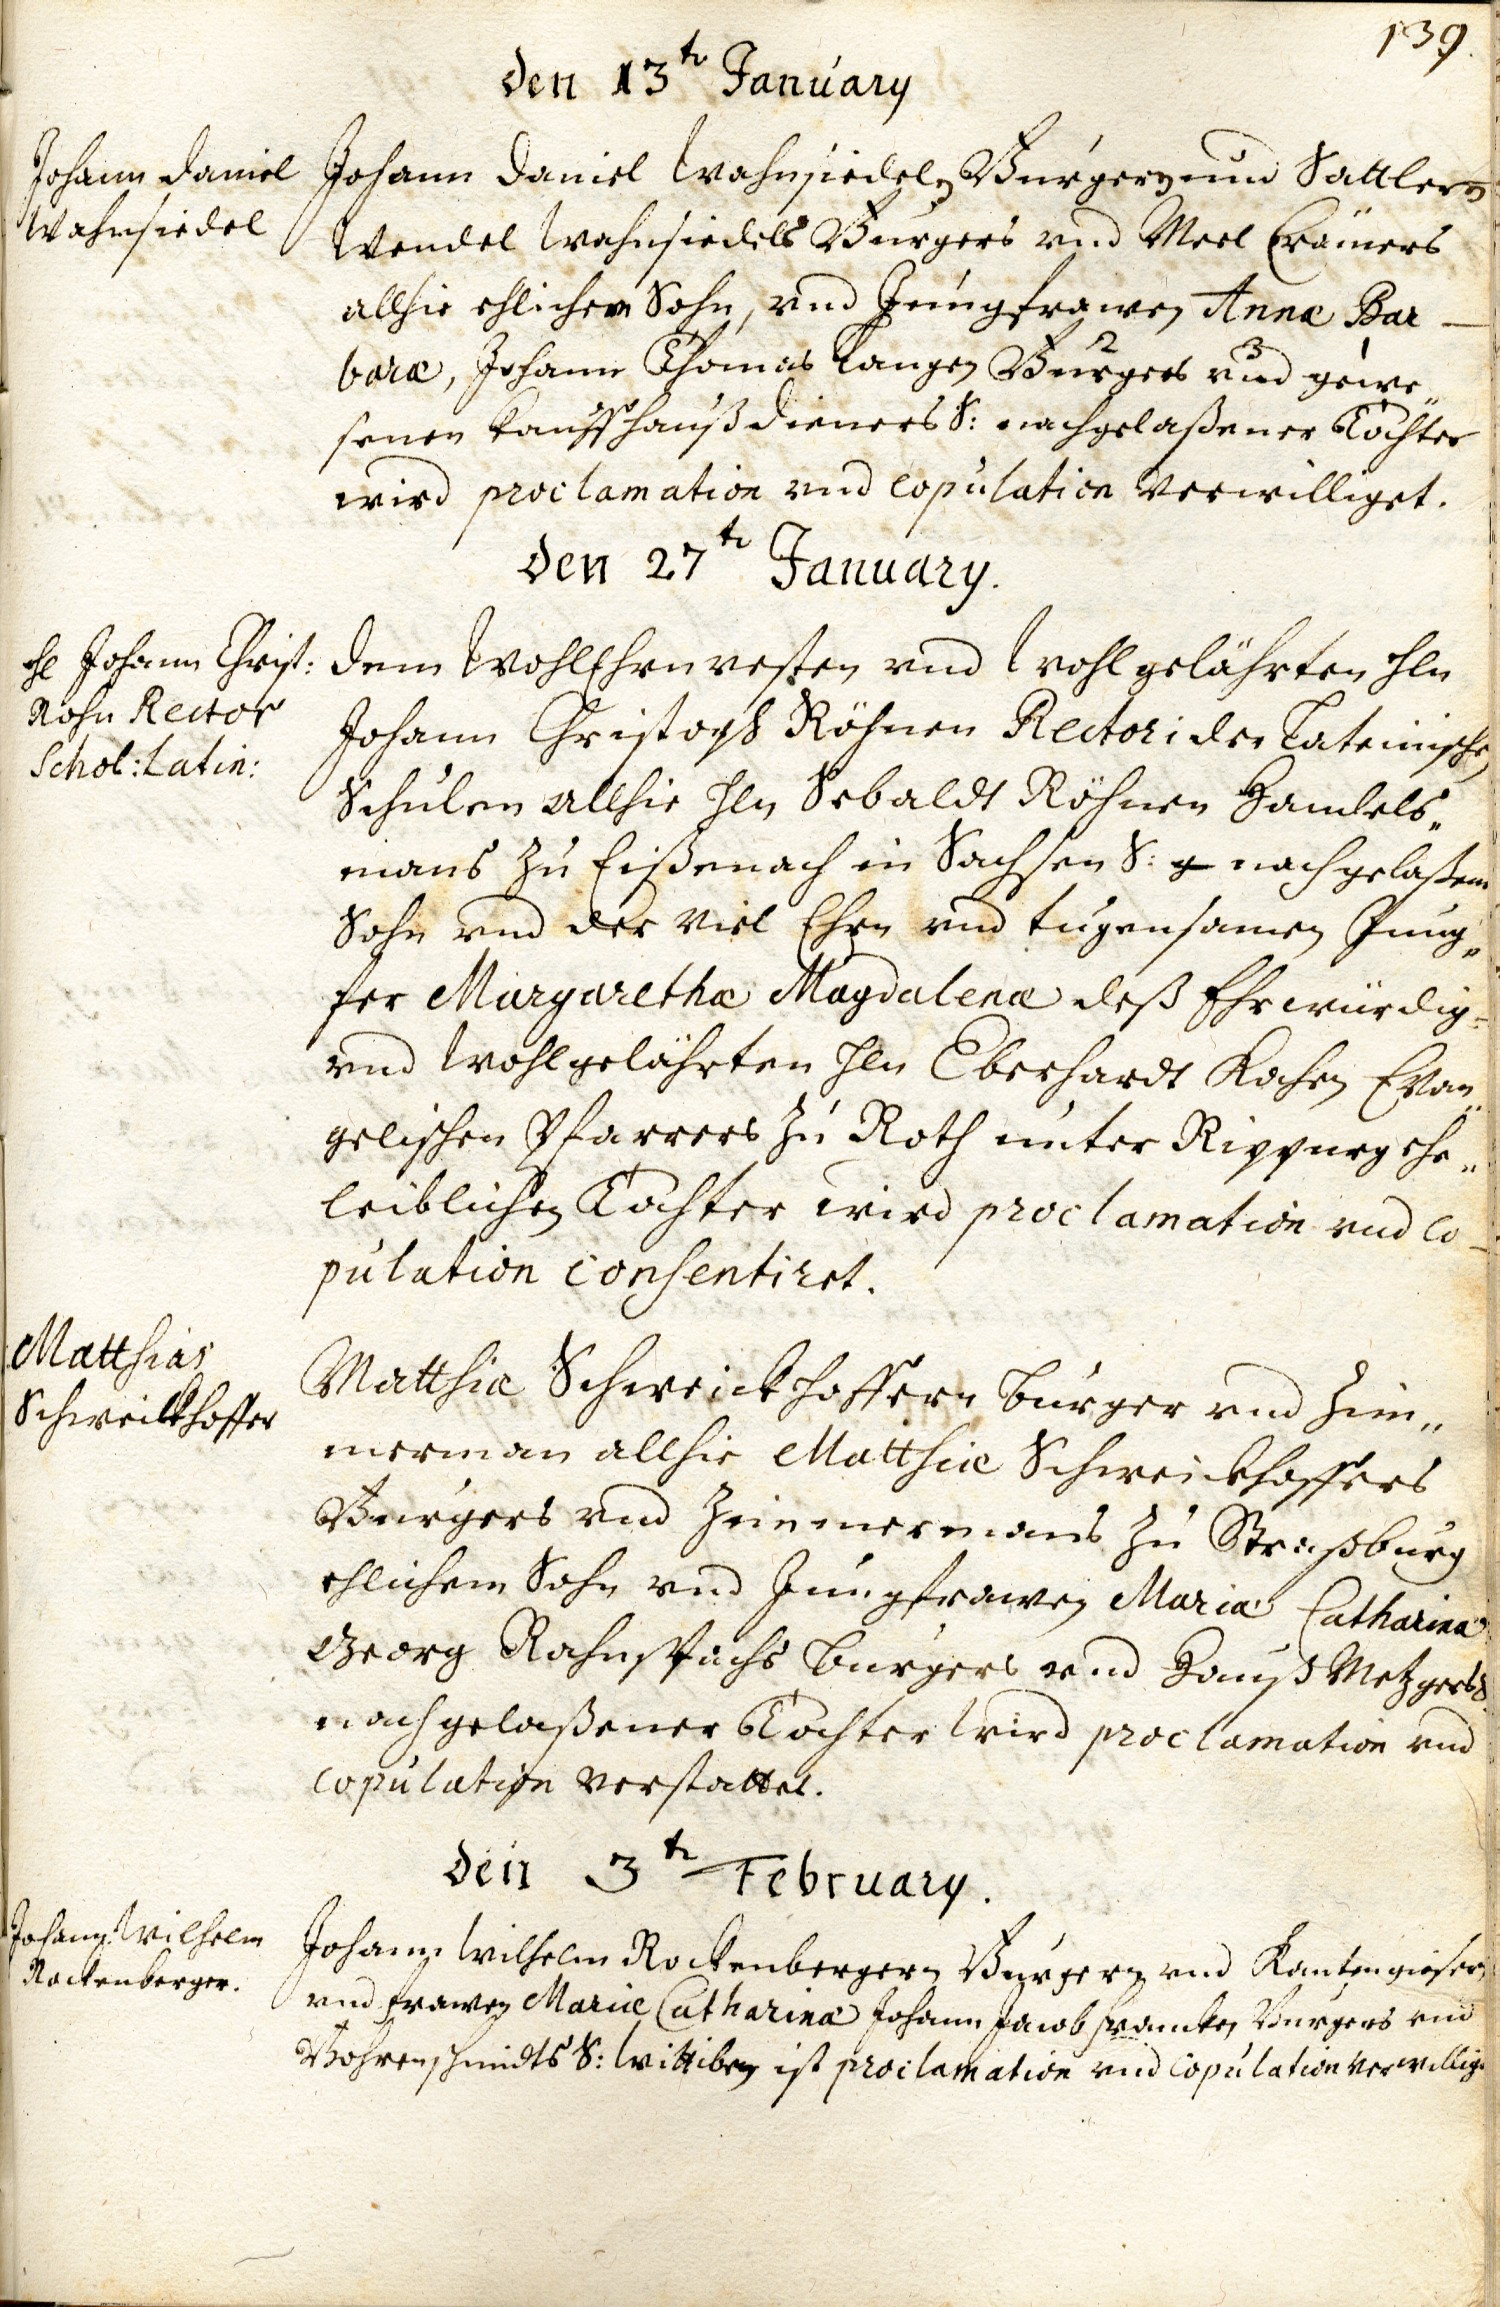 139.
den 13tn January
Johann Daniel
Wahnsiedel
Johann Daniel Wahnsiedeln Burgern und Sattlern
Wendel Wahnsiedels Burgers vnd Meel Crämers
allhie ehlichem Sohn, vnd Jungfrawen Annæ Bar-
baræ, Johann Thomas Langen Burgers vnd gewe„
2 3 1
senen Kauffhaußdieners S: nachgelaßener Tochter
wird proclamation vnd copulation verwilliget.
den 27tn January.
Hl Johann Christ:
Röhn Rector
Schol: Latin:
Dem WohlEhrnvesten vnd Wohlgelährten Hln
Johann Christoph Röhnen Rectori der Lateinischen
Schulen allhie Hln Sebaldt Röhnen Handels„
mans zu Eißenach in Sachsen S: nachgelaßenen
Sohn vnd der Viel Ehrn vnd tugensamen Jung„
fer Margarethæ Magdalenæ deß Ehrwürdig=
vnd Wohlgelährten Hln Eberhardt Kochen Evan„
gelischen Pfarrers zu Roth unter Rippurg ehe„
leiblichen Tochter wird proclamation vnd co-
pulation consentiret.
Matthias
Schweickhoffer
Matthiæ Schweickhoffern burger vnd Zim„
merman allhie Matthiæ Schweickhoffers
Burgers vnd Zimmermans zu Straßburg
ehlichem Sohn vnd Jungfrawen Mariæ Catharinæ
Georg Rahnspachs burgers vnd Haußmetzgers S:
nachgelaßener Tochter wird proclamation vnd
copulation verstattet.
den 3tn February.
Johann Wilhelm
Rockenberger.
Johann Wilhelm Rockenbergern Burgern vnd Kantengießern
vnd frawen Mariæ Catharinæ Johann Jacob Francken Burgers vnd
Bohrenschmidts S: Wittiben ist proclamation vnd copulation verwillig